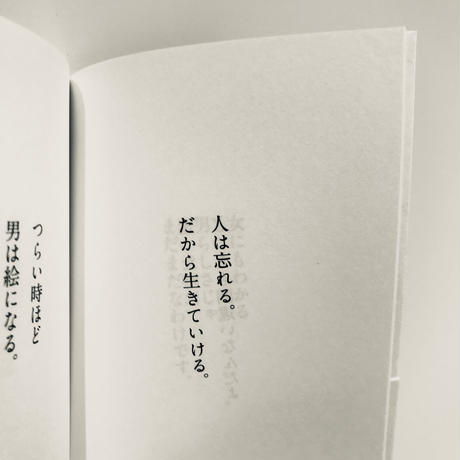 人は忘れる。
だから生きていける。
つらい時ほど
男は絵になる。